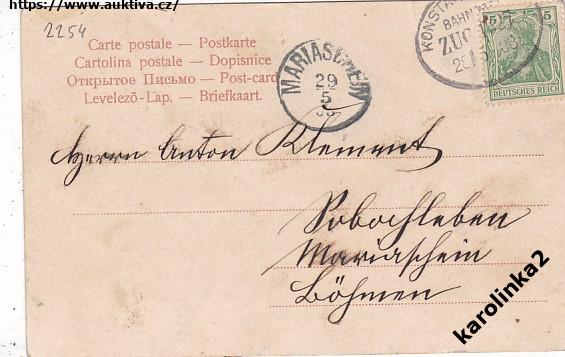 https://www.auktiva.cz/
2254
Carte postale — Postkarte
Cartolina postale — Dopisnice
Открытое Письмо — Post-card
Levelező-Lap. — Briefkaart.
MARIASCHEIN
29
5
KONSTA
BAHN
ZUG
5 5
DEUTSCHES REICH
Herrn Anton Klement
Sobochleben
Mariaschein
Böhmen
karolinka2